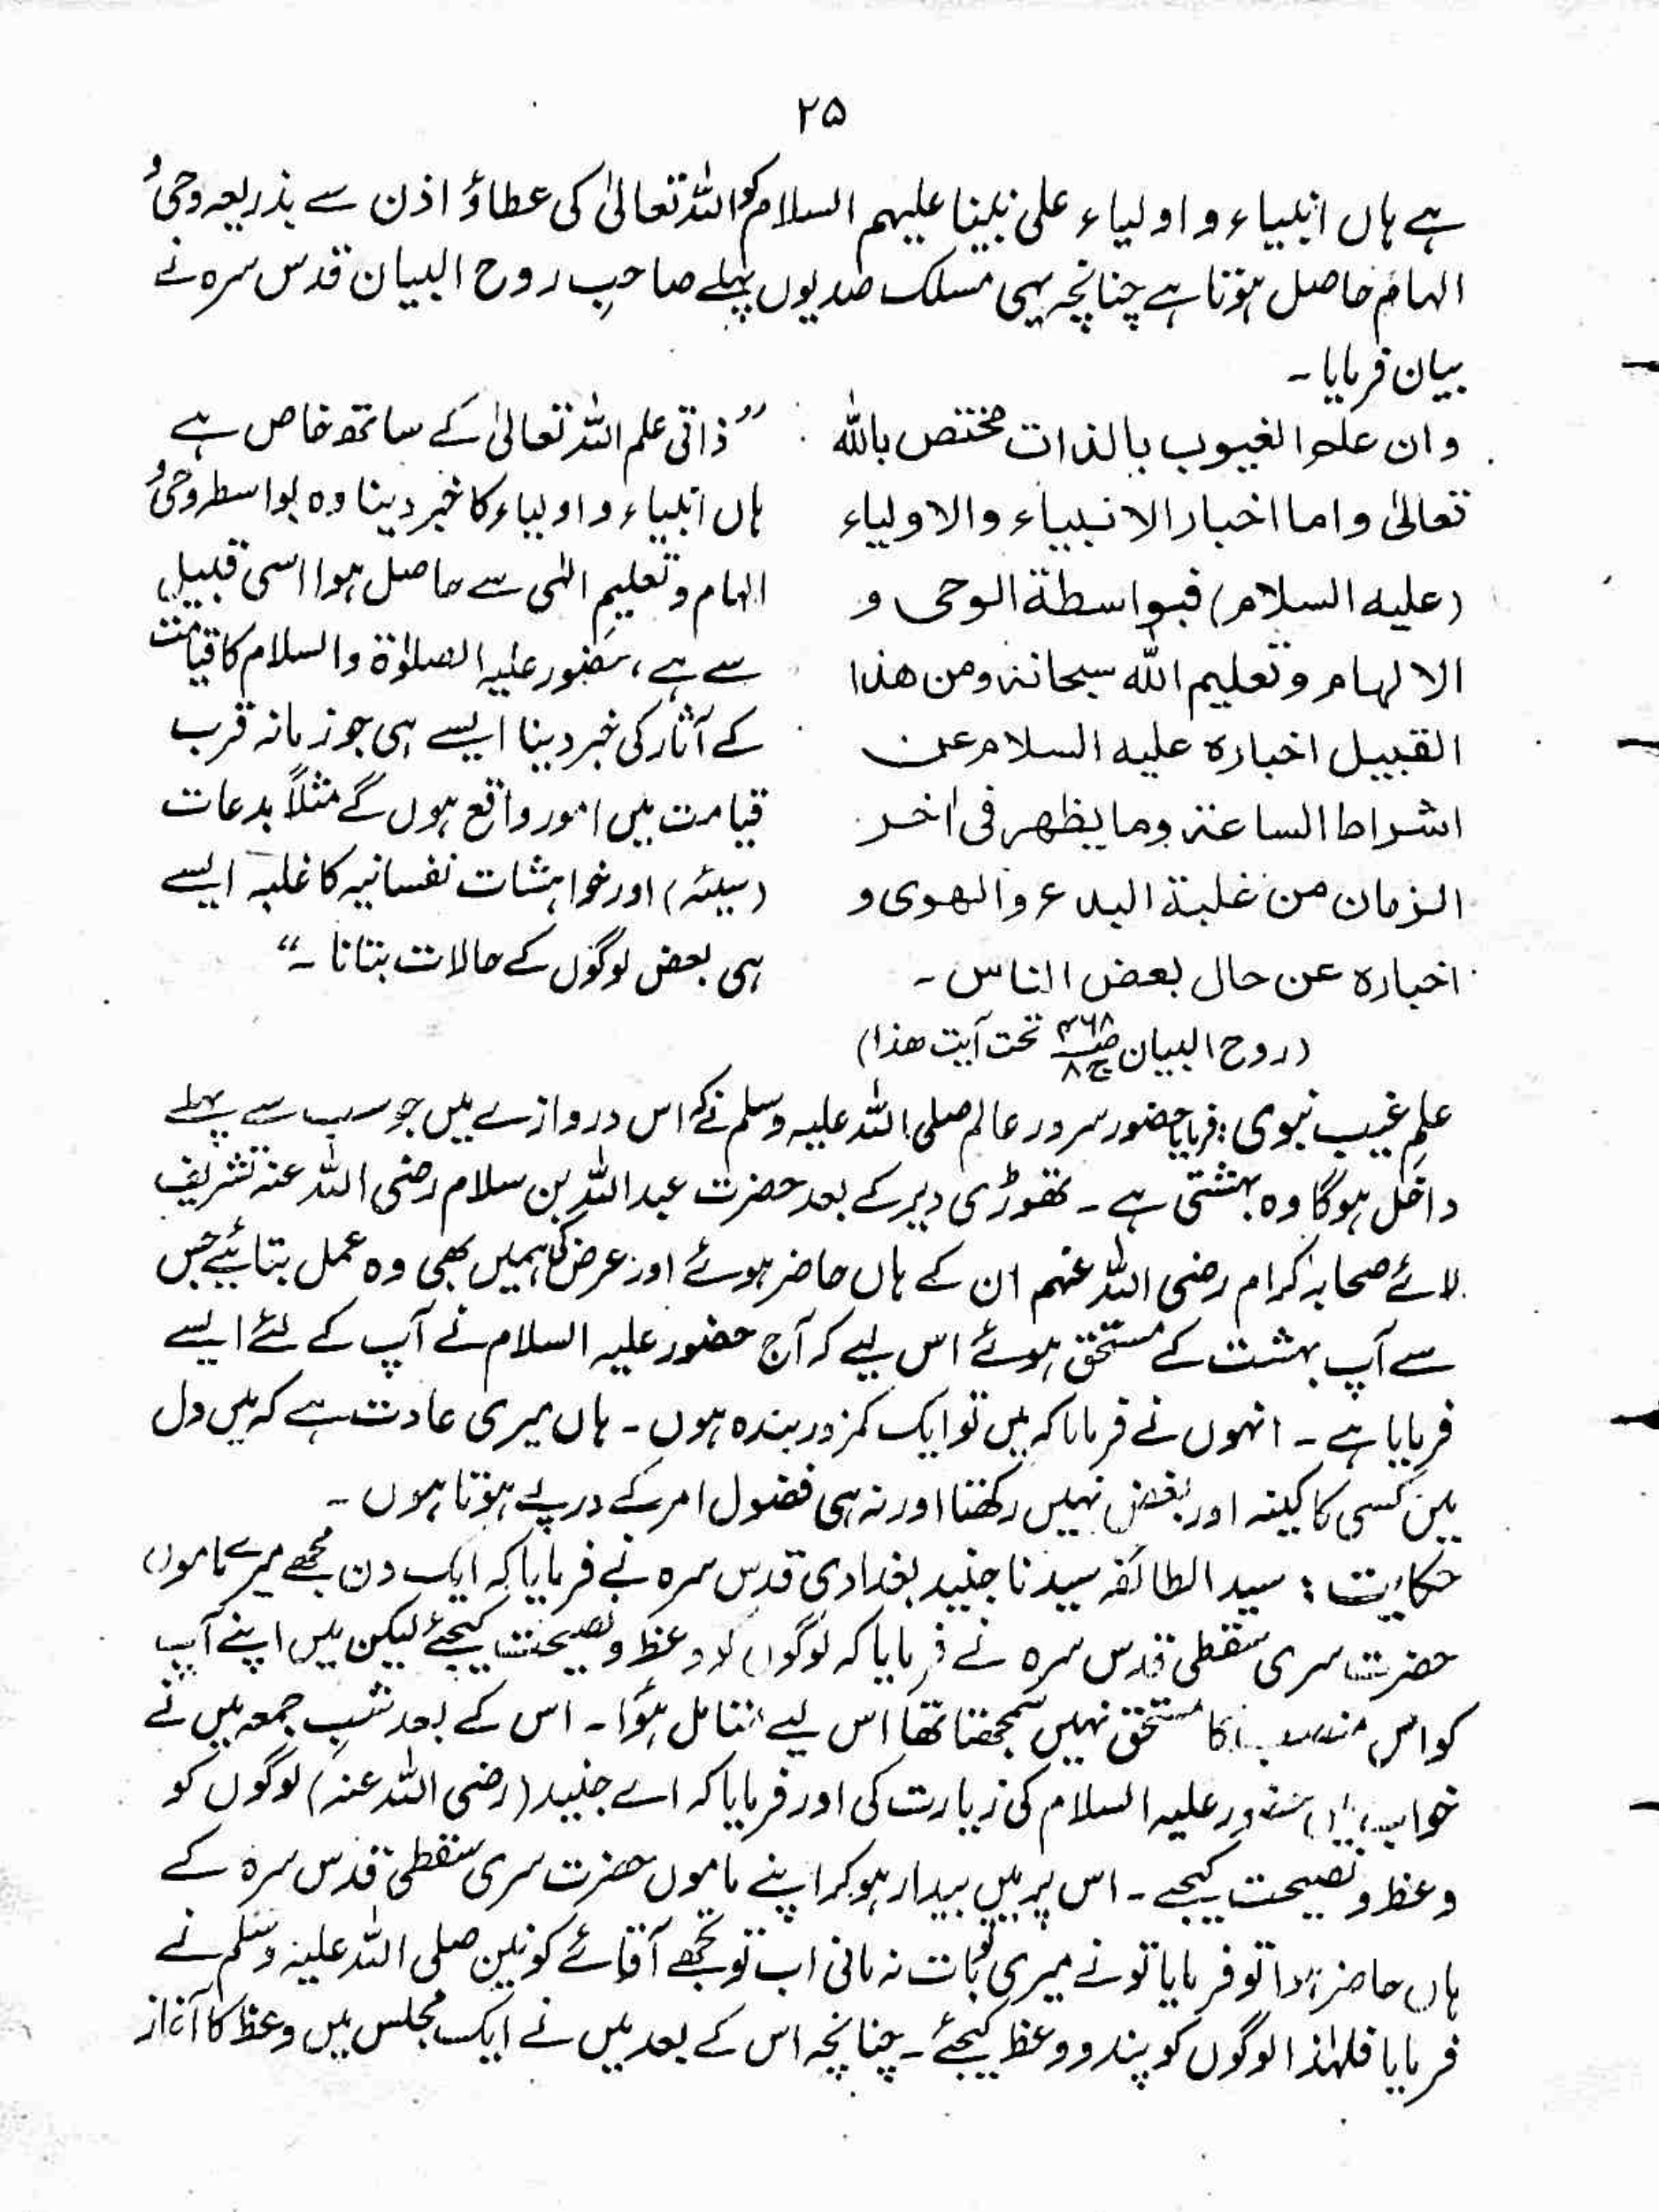 ۲۵
ہے ہاں انبیاء و اولیاء علی نبینا علیہم السلام کو اللہ تعالیٰ کی عطاؤ اذن سے بذریعہ وحی و
الہام حاصل ہوتا ہے چنانچہ یہی مسلک صدیوں پہلے صاحبِ روح البیان قدس سرہ نے
بیان فرمایا ۔
وان علم الغیوب بالذات مختص باللہ
تعالیٰ واما اخبار الانبیاء والاولیاء
(علیہ السلام) فبواسطۃ الوحی و
الالہام وتعلیم اللہ سبحانہ ومن ھذا
القبیل اخبارہ علیہ السلام عن
اشراط الساعۃ وما یظھر فی اٰخر
الزمان من غلبۃ البدع والھوی و
اخبارہ عن حال بعض الناس ۔
” ذاتی علم اللہ تعالیٰ کے ساتھ خاص ہے
ہاں انبیاء و اولیاء کا خبر دینا وہ بواسطہ وحی و
الہام و تعلیم الٰہی سے حاصل ہوا اسی قبیل
سے ہے ، حضور علیہ الصلوٰۃ والسلام کا قیامت
کے آثار کی خبر دینا ایسے ہی جو زمانہ قرب
قیامت میں امور واقع ہوں گے مثلاً بدعات
(سیئہ) اور خواہشات نفسانیہ کا غلبہ ایسے
ہی بعض لوگوں کے حالات بتانا ۔“
(روح البیان ص۴۶۸ ج۸ تحت آیت ھذا)
علمِ غیب نبوی : فرمایا حضور سرور عالم صلی اللہ علیہ وسلم نے کہ اس دروازے میں جو سب سے پہلے
داخل ہوگا وہ بہشتی ہے ۔ تھوڑی دیر کے بعد حضرت عبداللہ بن سلام رضی اللہ عنہ تشریف
لائے صحابہ کرام رضی اللہ عنہم ان کے ہاں حاضر ہوئے اور عرض کی ہمیں بھی وہ عمل بتائیے جس
سے آپ بہشت کے مستحق ہوئے اس لیے کہ آج حضور علیہ السلام نے آپ کے لئے ایسے
فرمایا ہے ۔ انہوں نے فرمایا کہ میں تو ایک کمزور بندہ ہوں ۔ ہاں میری عادت ہے کہ میں دل
میں کسی کا کینہ اور بغض نہیں رکھتا اور نہ ہی فضول امر کے درپے ہوتا ہوں ۔
حکایت : سید الطائفہ سیدنا جنید بغدادی قدس سرہ نے فرمایا کہ ایک دن مجھے میرے ماموں
حضرت سری سقطی قدس سرہ نے فرمایا کہ لوگوں کو وعظ و نصیحت کیجئے لیکن میں اپنے آپ
کو اس منصب کا مستحق نہیں سمجھتا تھا اس لیے متامل ہوٗا ۔ اس کے بعد شبِ جمعہ میں نے
خواب میں حضور علیہ السلام کی زیارت کی اور فرمایا کہ اے جنید (رضی اللہ عنہ) لوگوں کو
وعظ و نصیحت کیجے ۔ اس پر میں بیدار ہو کر اپنے ماموں حضرت سری سقطی قدس سرہ کے
ہاں حاضر ہوا تو فرمایا تو نے میری تو بات نہ مانی اب تو تجھے آقائے کونین صلی اللہ علیہ وسلم نے
فرمایا فلہٰذا لوگوں کو پند و وعظ کیجئے ۔ چنانچہ اس کے بعد میں نے ایک مجلس میں وعظ کا آغاز